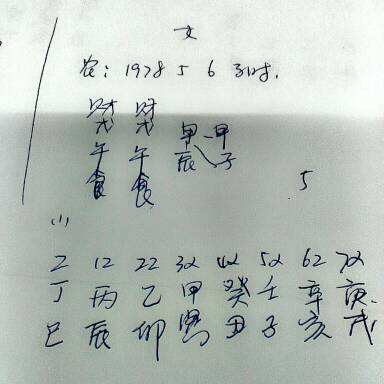 女
农：1978 5 6 子时.
财 财
戊 戊 甲 甲
午 午 辰 子
食 食
5
(1)
2 12 22 32 42 52 62 72
丁 丙 乙 甲 癸 壬 辛 庚
巳 辰 卯 寅 丑 子 亥 戌